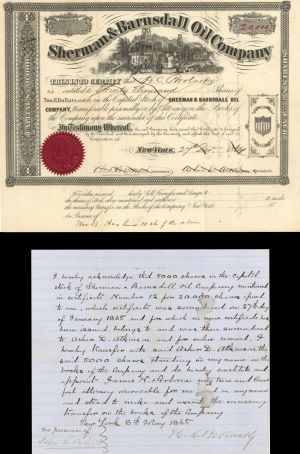 20,000
Sherman & Barnsdall Oil Company
THIS IS TO CERTIFY that
is entitled to Twenty Thousand Shares of
Two Dollars, each, in the Capital Stock of SHERMAN & BARNSDALL OIL
COMPANY, transferable personally or by Attorney on the Books of the
Company upon the surrender of this Certificate.
In Testimony Whereof,
NEW-YORK,
President
For value received hereby Sell, Transfer and Assign to
the shares of stock within mentioned, and authorize
to make
the necessary transfer on the Books of the Company, New York
In Presence of
I hereby acknowledge that 5000 shares in the capital
stock of Sherman & Barnsdall Oil Company mentioned
in certificate Number 12 for 20,000 shares issued
to me, which certificate was surrendered on 27 day
of January 1865 and for which a new certificate has
been issued belongs to and was then surrendered
to Asher D. Atkinson and for value received I
hereby transfer unto said Asher D. Atkinson the
said 5000 shares standing in my name on the
books of the Company and do hereby constitute and
appoint James K. my true and lawful
attorney irrevocable for me and in my name
and stead to make and record the necessary
transfer on the books of the Company
New York 8th May 1865
In presence of